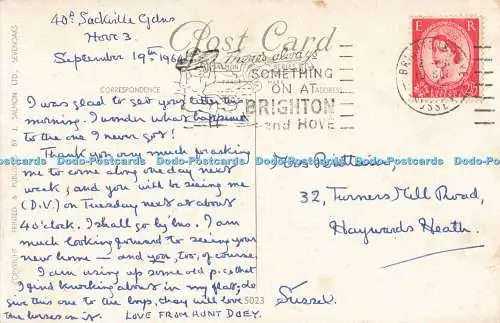 40ᴬ Sackville Gdns
Hove 3.
September 19th 1964
Post Card
There's always
SOMETHING
ON AT
BRIGHTON
and HOVE
E R
CORRESPONDENCE
ADDRESS
I was glad to get your letter this
morning. I wonder what happened
to the one I never got!
Thank you very much for asking me
to come along one day next
week, and you will be seeing me
(D.V.) on Tuesday next at about
4 o'clock. I shall go by bus. I am
much looking forward to seeing your
new home – and you, too, of course.
I am using up some old p.cs that
I find knocking about in my flat, so
give this one to the boys, they will love
the horses in it. LOVE FROM AUNT DOEY.
5023
Mrs
32, Turners Mill Road,
Haywards Heath.
Sussex.
COPYRIGHT PRINTED & PUBLISHED BY J. SALMON LTD., SEVENOAKS
Dodo-Postcards Dodo-Postcards Dodo-Postcards Dodo-Postcards Dodo-Postcards